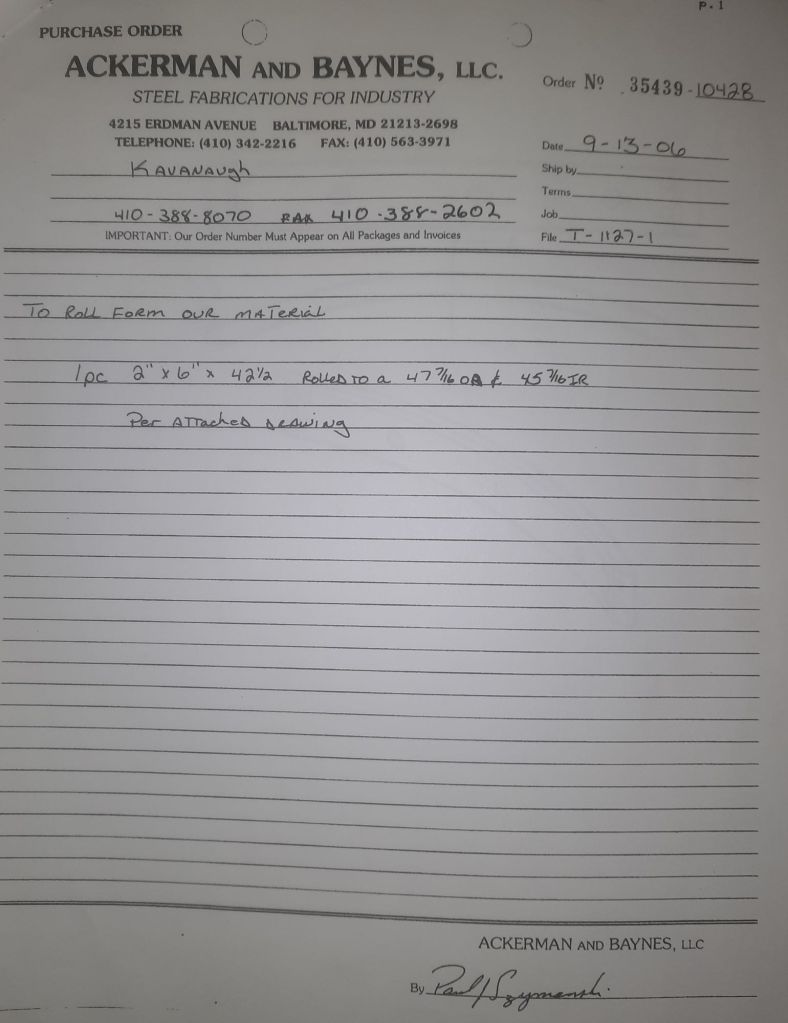 P. 1
PURCHASE ORDER
ACKERMAN AND BAYNES, LLC.
STEEL FABRICATIONS FOR INDUSTRY
4215 ERDMAN AVENUE BALTIMORE, MD 21213-2698
TELEPHONE: (410) 342-2216 FAX: (410) 563-3971
Order Nº 35439-10428
Date 9-13-06
Ship by
Terms
Job
File T-1127-1
KAVANAUgh
410-388-8070 FAX 410-388-2602
IMPORTANT: Our Order Number Must Appear on All Packages and Invoices
To Roll Form our MATerial
1pc 2" x 6" x 42 1/2 Rolled to a 47 7/16 OR & 45 7/16 IR
Per ATTached drawing
ACKERMAN AND BAYNES, LLC
By Paul J Szymanski